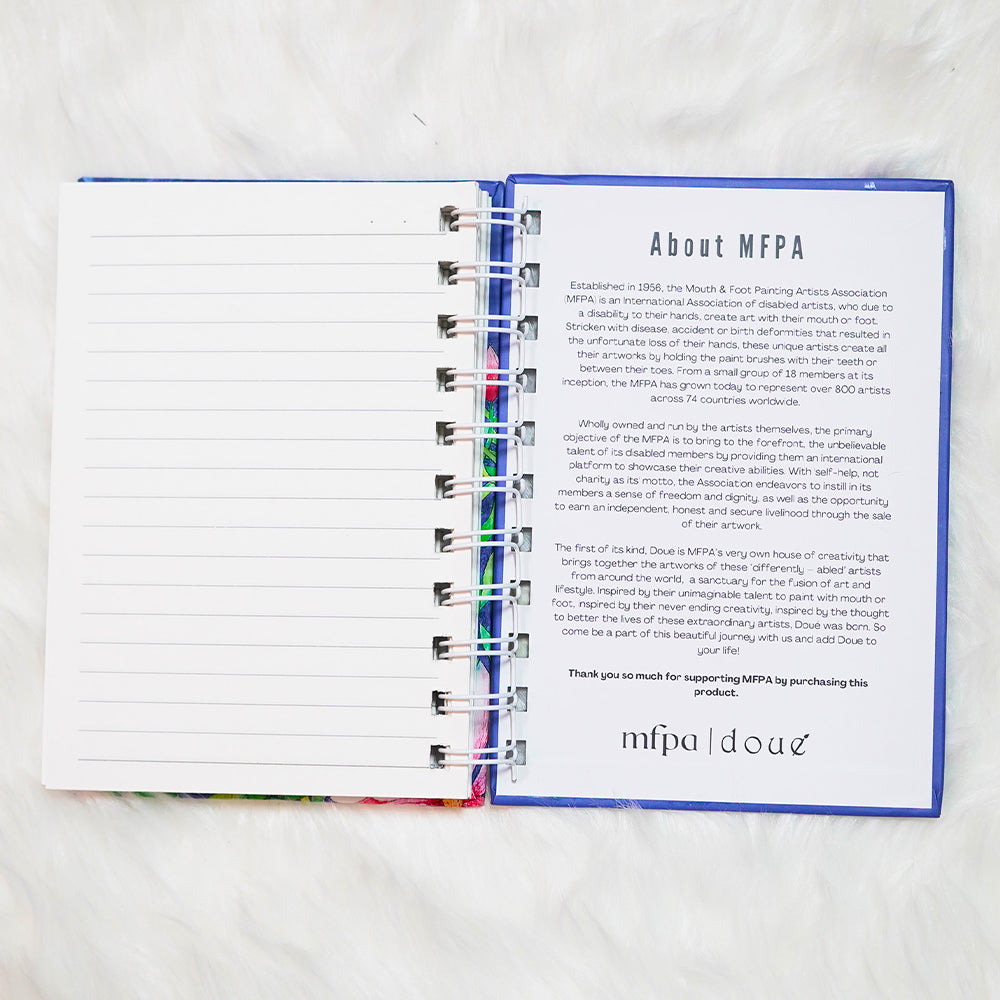 About MFPA
Established in 1956, the Mouth & Foot Painting Artists Association
(MFPA) is an International Association of disabled artists, who due to
a disability to their hands, create art with their mouth or foot.
Stricken with disease, accident or birth deformities that resulted in
the unfortunate loss of their hands, these unique artists create all
their artworks by holding the paint brushes with their teeth or
between their toes. From a small group of 18 members at its
inception, the MFPA has grown today to represent over 800 artists
across 74 countries worldwide.
Wholly owned and run by the artists themselves, the primary
objective of the MFPA is to bring to the forefront, the unbelievable
talent of its disabled members by providing them an international
platform to showcase their creative abilities. With 'self-help, not
charity as its' motto, the Association endeavors to instill in its
members a sense of freedom and dignity, as well as the opportunity
to earn an independent, honest and secure livelihood through the sale
of their artwork.
The first of its kind, Doue is MFPA's very own house of creativity that
brings together the artworks of these 'differently – abled' artists
from around the world, a sanctuary for the fusion of art and
lifestyle. Inspired by their unimaginable talent to paint with mouth or
foot, inspired by their never ending creativity, inspired by the thought
to better the lives of these extraordinary artists, Doue was born. So
come be a part of this beautiful journey with us and add Doue to
your life!
Thank you so much for supporting MFPA by purchasing this
product.
mfpa | doue